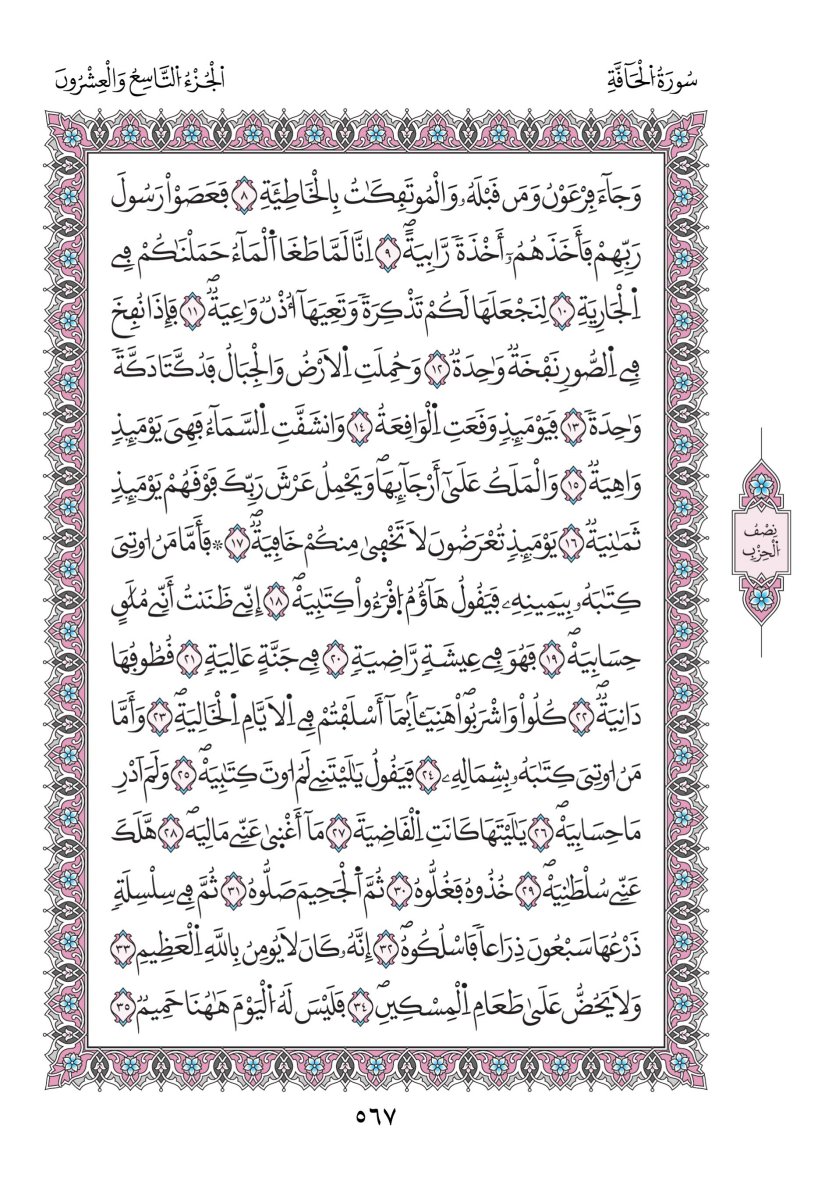 سُورَةُ الْحَآقَّةِ
الْجُزْءُ التَّاسِعُ وَالْعِشْرُونَ
وَجَآءَ فِرْعَوْنُ وَمَن قَبْلَهُۥ وَالْمُوتَفِكَٰتُ بِالْخَاطِئَةِ ٨ فَعَصَوْاْ رَسُولَ
رَبِّهِمْ فَأَخَذَهُمُۥٓ أَخْذَةٗ رَّابِيَةًۖ ٩ اِنَّا لَمَّا طَغَا اَ۬لْمَآءُ حَمَلْنَٰكُمْ فِے
اِ۬لْجَارِيَةِ ١٠ لِنَجْعَلَهَا لَكُمْ تَذْكِرَةٗ وَتَعِيَهَآ أُذْنٞ وَٰعِيَةٞۖ ١١ فَإِذَا نُفِخَ
فِے اِ۬لصُّورِ نَفْخَةٞ وَٰحِدَةٞ ١٢ وَحُمِلَتِ اِ۬لَارْضُ وَالْجِبَالُ فَدُكَّتَا دَكَّةٗ
وَٰحِدَةٗ ١٣ فَيَوْمَئِذٖ وَقَعَتِ اِ۬لْوَاقِعَةُ ١٤ وَانشَقَّتِ اِ۬لسَّمَآءُ فَهِيَ يَوْمَئِذٖ
وَاهِيَةٞ ١٥ وَالْمَلَكُ عَلَىٰٓ أَرْجَآئِهَاۖ وَيَحْمِلُ عَرْشَ رَبِّكَ فَوْقَهُمْ يَوْمَئِذٖ
ثَمَٰنِيَةٞۖ ١٦ يَوْمَئِذٖ تُعْرَضُونَ لَا تَخْفَىٰ مِنكُمْ خَافِيَةٞۖ ١٧ ۞ فَأَمَّا مَنُ ا۟وتِيَ
كِتَٰبَهُۥ بِيَمِينِهِۦ فَيَقُولُ هَآؤُمُ اُ۪قْرَءُواْ كِتَٰبِيَهْۖ ١٨ إِنِّے ظَنَنتُ أَنِّے مُلَٰقٍ
حِسَابِيَهْۖ ١٩ فَهُوَ فِے عِيشَةٖ رَّاضِيَةٖ ٢٠ فِے جَنَّةٍ عَالِيَةٖ ٢١ قُطُوفُهَا
دَانِيَةٞۖ ٢٢ كُلُواْ وَاشْرَبُواْ هَنِيٓـٔاَۢ بِمَآ أَسْلَفْتُمْ فِے اِ۬لَايَّامِ اِ۬لْخَالِيَةِۖ ٢٣ وَأَمَّا
مَنُ ا۟وتِيَ كِتَٰبَهُۥ بِشِمَالِهِۦ ٢٤ فَيَقُولُ يَٰلَيْتَنِے لَمُ ا۟وتَ كِتَٰبِيَهْۖ ٢٥ وَلَمَ اَدْرِ
مَا حِسَابِيَهْۖ ٢٦ يَٰلَيْتَهَا كَانَتِ اِ۬لْقَاضِيَةَ ٢٧ مَآ أَغْنَىٰ عَنِّے مَالِيَهْۖ ٢٨ هَّلَكَ
عَنِّے سُلْطَٰنِيَهْۖ ٢٩ خُذُوهُ فَغُلُّوهُ ٣٠ ثُمَّ اَ۬لْجَحِيمَ صَلُّوهُ ٣١ ثُمَّ فِے سِلْسِلَةٖ
ذَرْعُهَا سَبْعُونَ ذِرَاعاٗ فَاسْلُكُوهُۖ ٣٢ إِنَّهُۥ كَانَ لَا يُومِنُ بِاللَّهِ اِ۬لْعَظِيمِ ٣٣
وَلَا يَحُضُّ عَلَىٰ طَعَامِ اِ۬لْمِسْكِينِۖ ٣٤ فَلَيْسَ لَهُ اُ۬لْيَوْمَ هَٰهُنَا حَمِيمٞ ٣٥
نِصْفُ
الْحِزْبِ
٥٦٧